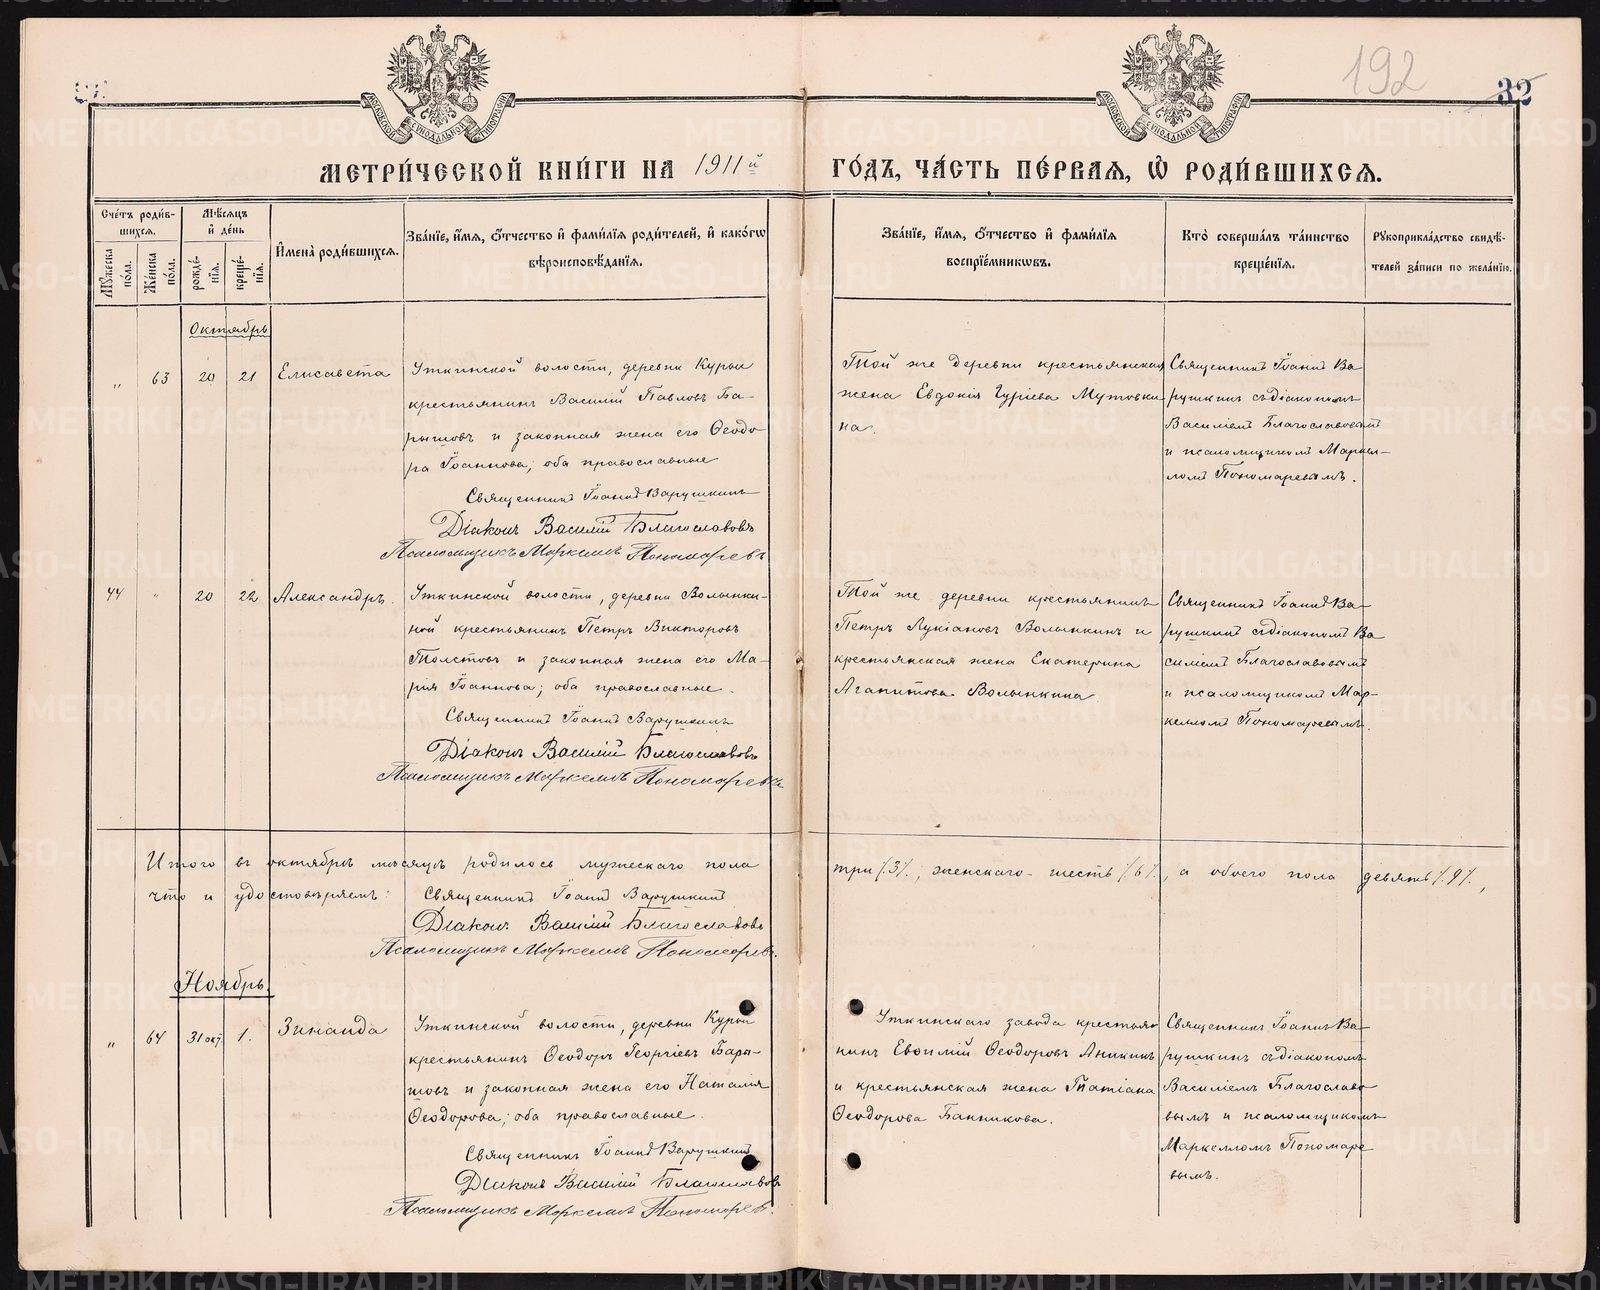 192
32
МЕТРИ́ЧЕСКОЙ КНИ́ГИ НА 1911й ГО́ДЪ, ЧА́СТЬ ПЕ́РВАѦ, Ѡ҆ РОДИ́ВШИХСѦ.
Сче́тъ роди́в-
шихсѧ.
Мꙋ́жеска по́ла.
Же́нска по́ла.
Мѣ́сѧцъ
и҆ де́нь
рожде́-
нїѧ.
креще́-
нїѧ.
И҆мена̀ роди́вшихсѧ.
Зва́нїе, и҆́мѧ, ѻ҆́тчество и҆ фами́лїѧ роди́телей, и҆ како́гѡ
вѣроисповѣ́данїѧ.
Зва́нїе, и҆́мѧ, ѻ҆́тчество и҆ фами́лїѧ
воспрїе́мникѡвъ.
Кто̀ соверша́лъ та́инство
креще́нїѧ.
Рꙋкоприкла́дство свидѣ́-
телей за́писи по жела́нїю.
Октябрь
„ 63 20 21 Елисавета
Уткинской волости, деревни Курьи
крестьянинъ Василій Павловъ Ба-
рышовъ и законная жена его Ѳеодо-
ра Іоаннова; оба православные
Священникъ Іоаннъ Варушкинъ
Діаконъ Василій Благославовъ
Псаломщикъ Маркеллъ Пономаревъ
Той же деревни крестьянская
жена Евдокія Гуріева Мутовки
на.
Священникъ Іоаннъ Ва-
рушкинъ съ діакономъ
Василіемъ Благославовымъ
и псаломщикомъ Маркел-
ломъ Пономаревымъ.
44 „ 20 22 Александръ.
Уткинской волости, деревни Волынки-
ной крестьянинъ Петръ Викторовъ
Толстовъ и законная жена его Ма-
рія Іоаннова; оба православные.
Священникъ Іоаннъ Варушкинъ
Діаконъ Василій Благославовъ
Псаломщикъ Маркеллъ Пономаревъ
Той же деревни крестьянинъ
Петръ Лукіановъ Волынкинъ и
крестьянская жена Екатерина
Агапитова Волынкина.
Священникъ Іоаннъ Ва-
рушкинъ съ діакономъ Ва
силіемъ Благославовымъ
и псаломщикомъ Мар-
келломъ Пономаревымъ.
Итого въ октябрѣ мѣсяцѣ родилось мужескаго пола три /.3/., женскаго - шесть /.6/., а обоего пола девять /.9/.,
что и удостовѣряемъ:
Священникъ Іоаннъ Варушкинъ
Діаконъ Василій Благославовъ
Псаломщикъ Маркеллъ Пономаревъ.
Ноябрь.
„ 64 31 окт. 1. Зинаида
Уткинской волости, деревни Курьи
крестьянинъ Ѳеодоръ Георгіевъ Бары-
шовъ и законная жена его Наталія
Ѳеодорова; оба православные.
Священникъ Іоаннъ Варушкинъ
Діаконъ Василій Благославовъ
Псаломщикъ Маркеллъ Пономаревъ.
Уткинскаго завода крестья-
нинъ Евѳимій Ѳеодоровъ Аникинъ
и крестьянская жена Татіана
Ѳеодорова Банникова.
Священникъ Іоаннъ Ва-
рушкинъ съ діакономъ
Василіемъ Благославо
вымъ и псаломщикомъ
Маркелломъ Пономаре
вымъ.
METRIKI.GASO-URAL.RU